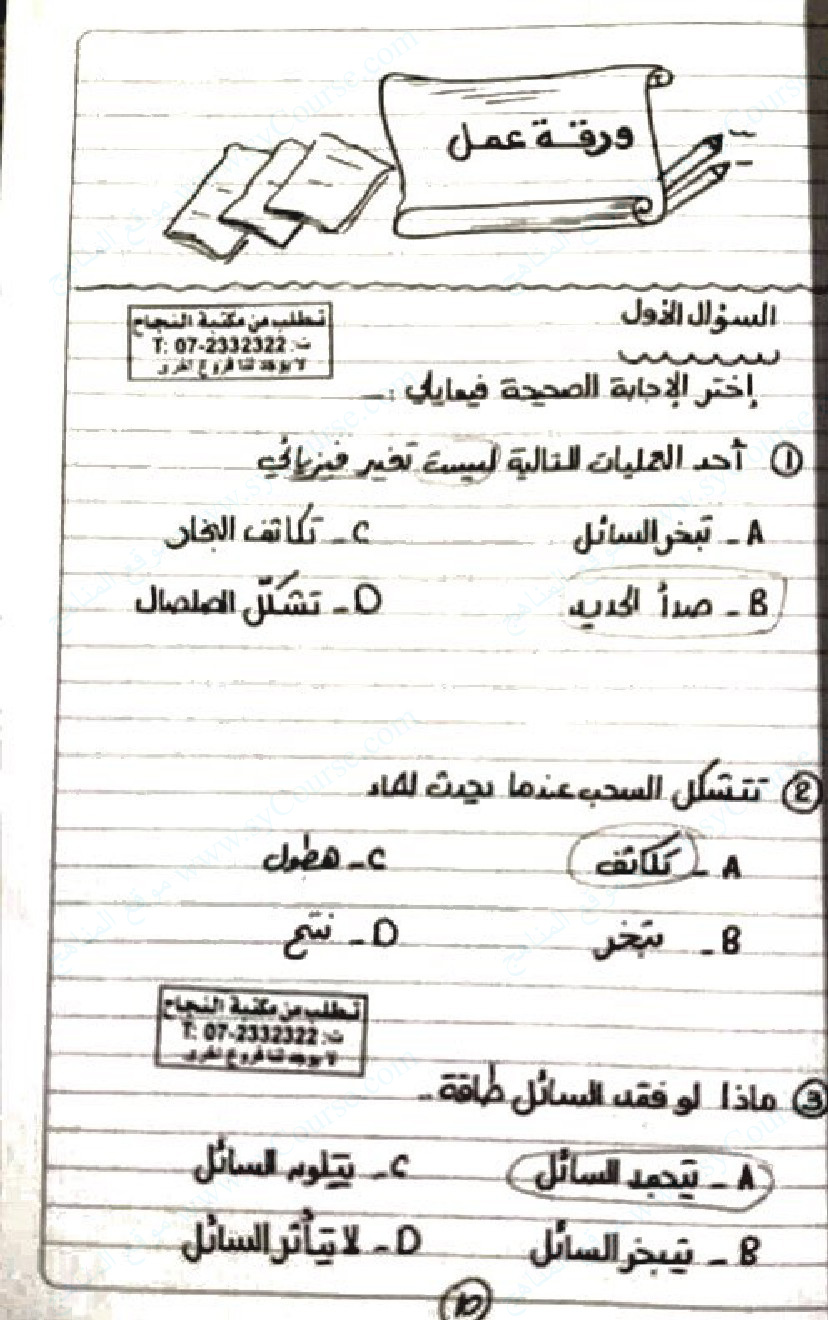 ورقة عمل
السؤال الأول
تطلب من مكتبة النجاح
ت: T: 07-2332322
لا يوجد لنا فروع أخرى
إختر الإجابة الصحيحة فيمايلي :-
① أحد العمليات التالية ليست تغير فيزيائي
A - تبخر السائل C - تكاثف البخار
B - صدأ الحديد D - تشكّل الصلصال
② تتشكل السحب عندما يحدث للماء
A - تكاثف C - هطول
B - تبخر D - نتح
تطلب من مكتبة النجاح
ت: T: 07-2332322
لا يوجد لنا فروع أخرى
③ ماذا لو فقد السائل طاقة -
A - يتجمد السائل C - يتلون السائل
B - يتبخر السائل D - لا يتأثر السائل
موقع المناهج www.syCourse.com